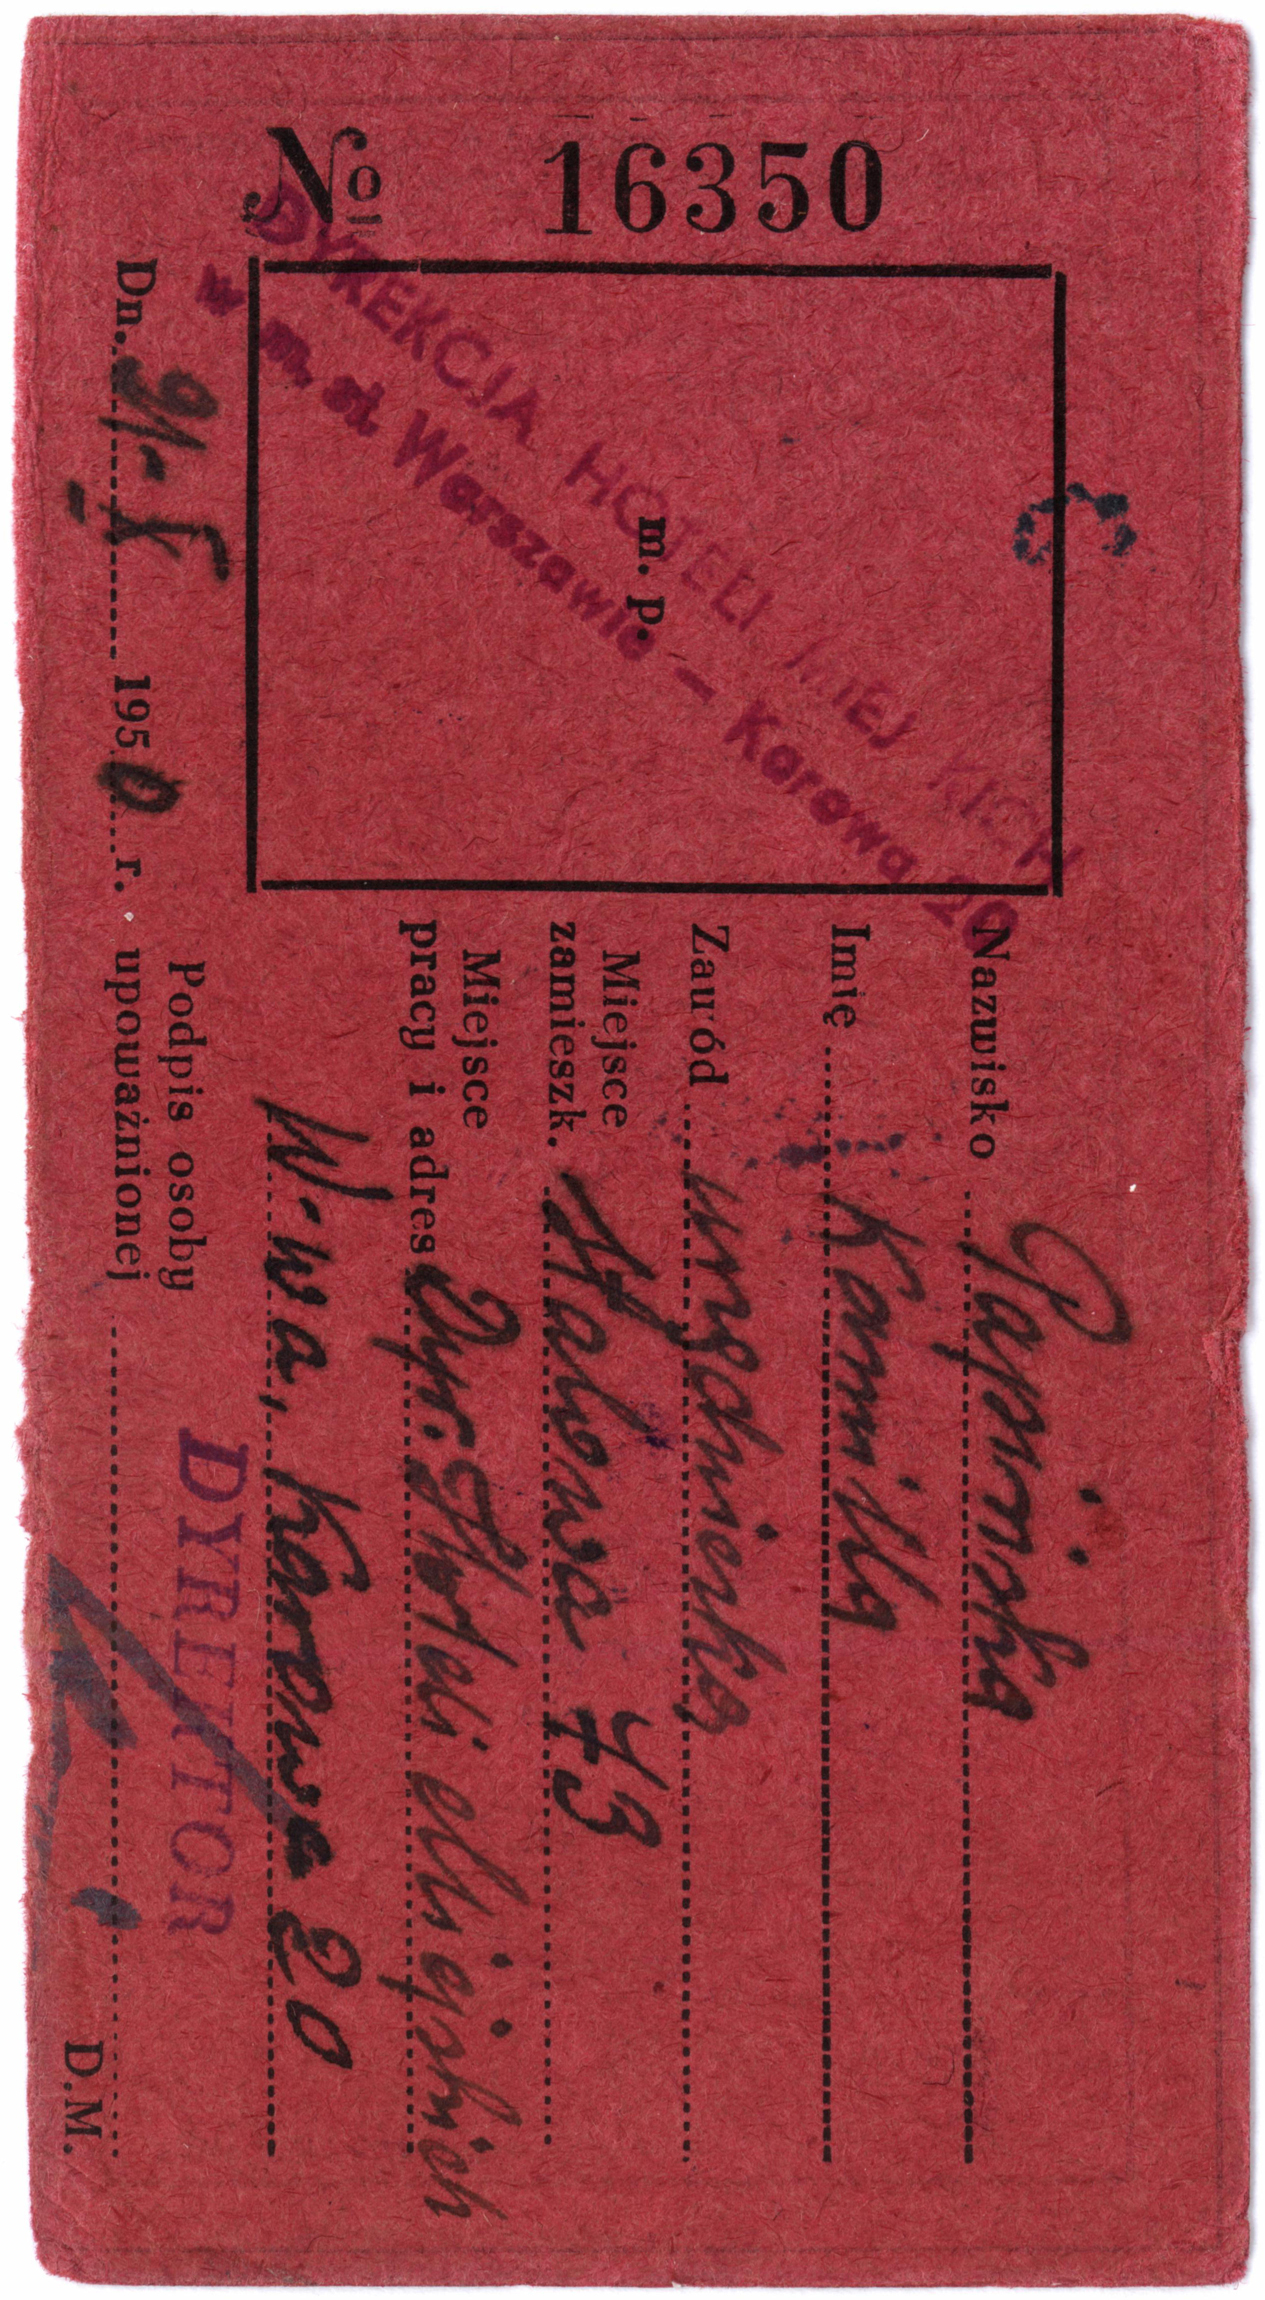 № 16350
DYREKCJA HOTELI MIEJSKICH
w m. st. Warszawie — Karowa 20
m. p.
Nazwisko Papińska
Imię Kamilla
Zawód urzędniczka
Miejsce
zamieszk. Stalowa 73
Miejsce
pracy i adres Dyr. Hoteli Miejskich
W-wa, Karowa 20
Dn. 91. X 1950 r.
Podpis osoby
upoważnionej
DYREKTOR
D.M.